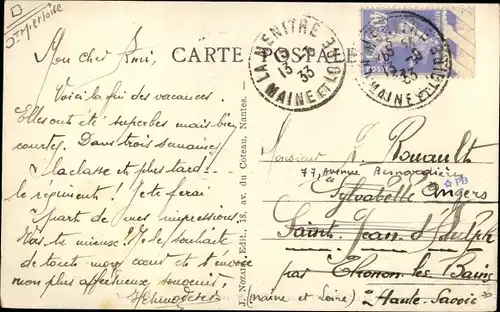 CARTE POSTALE
LA MENITRÉ
13 -9
33
MAINE ET LOIRE
Mon cher Ami,
Voici la fin des vacances.
Elles ont été superbes mais bien
courtes. Dans trois semaines
la classe et plus tard
le régiment! Je te ferai
part de mes impressions.
Vas-tu mieux? Je le souhaite
de tout mon cœur et t'envoie
mon plus affectueux souvenir.
J. Nozais, Edit., 18, av. du Coteau, Nantes.
Monsieur Rouault
77, Avenue
Angers
PB
Saint Jean d'Aulph
par Thonon les Bains
(Maine et Loire) Haute-Savoie